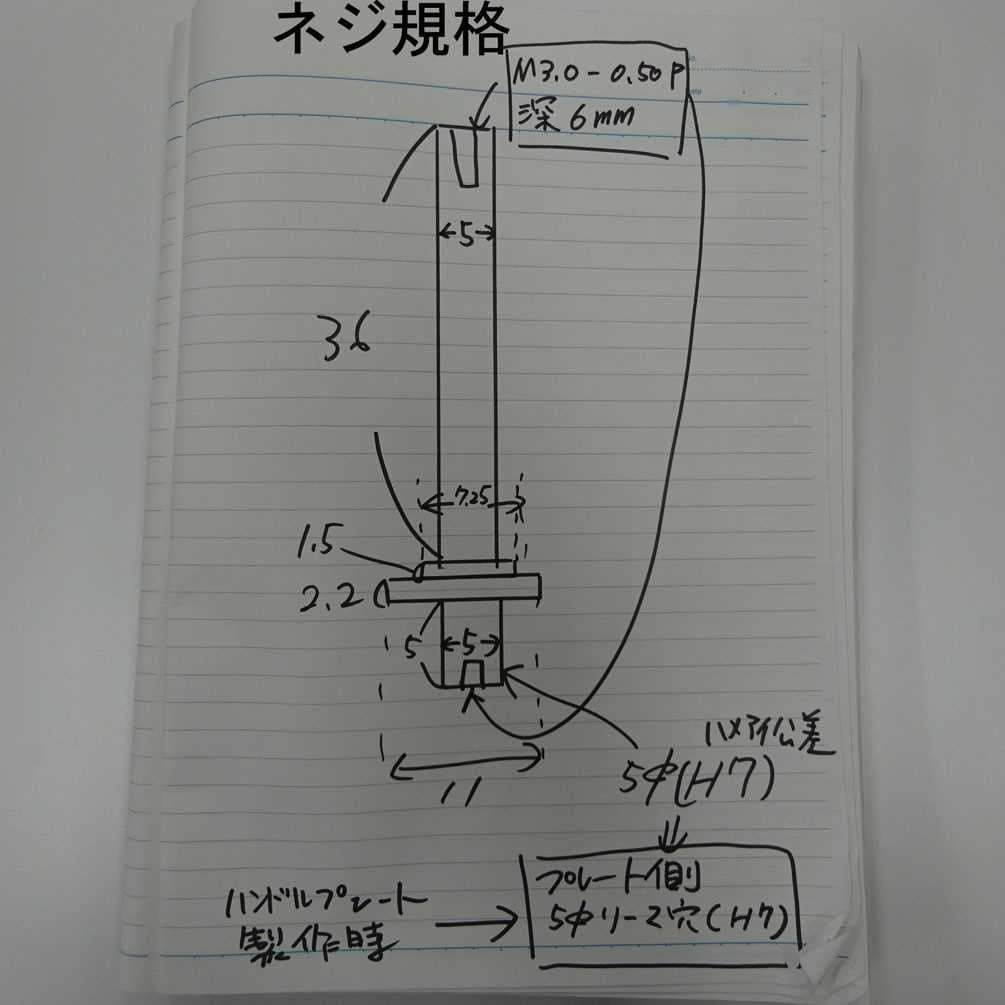 ネジ規格
M3.0-0.50P
深6mm
5
36
7.25
1.5
2.2
5
5
11
ハメアイ公差
5Φ(H7)
ハンドルプレート
製作時
プレート側
5Φリーマ穴(H7)